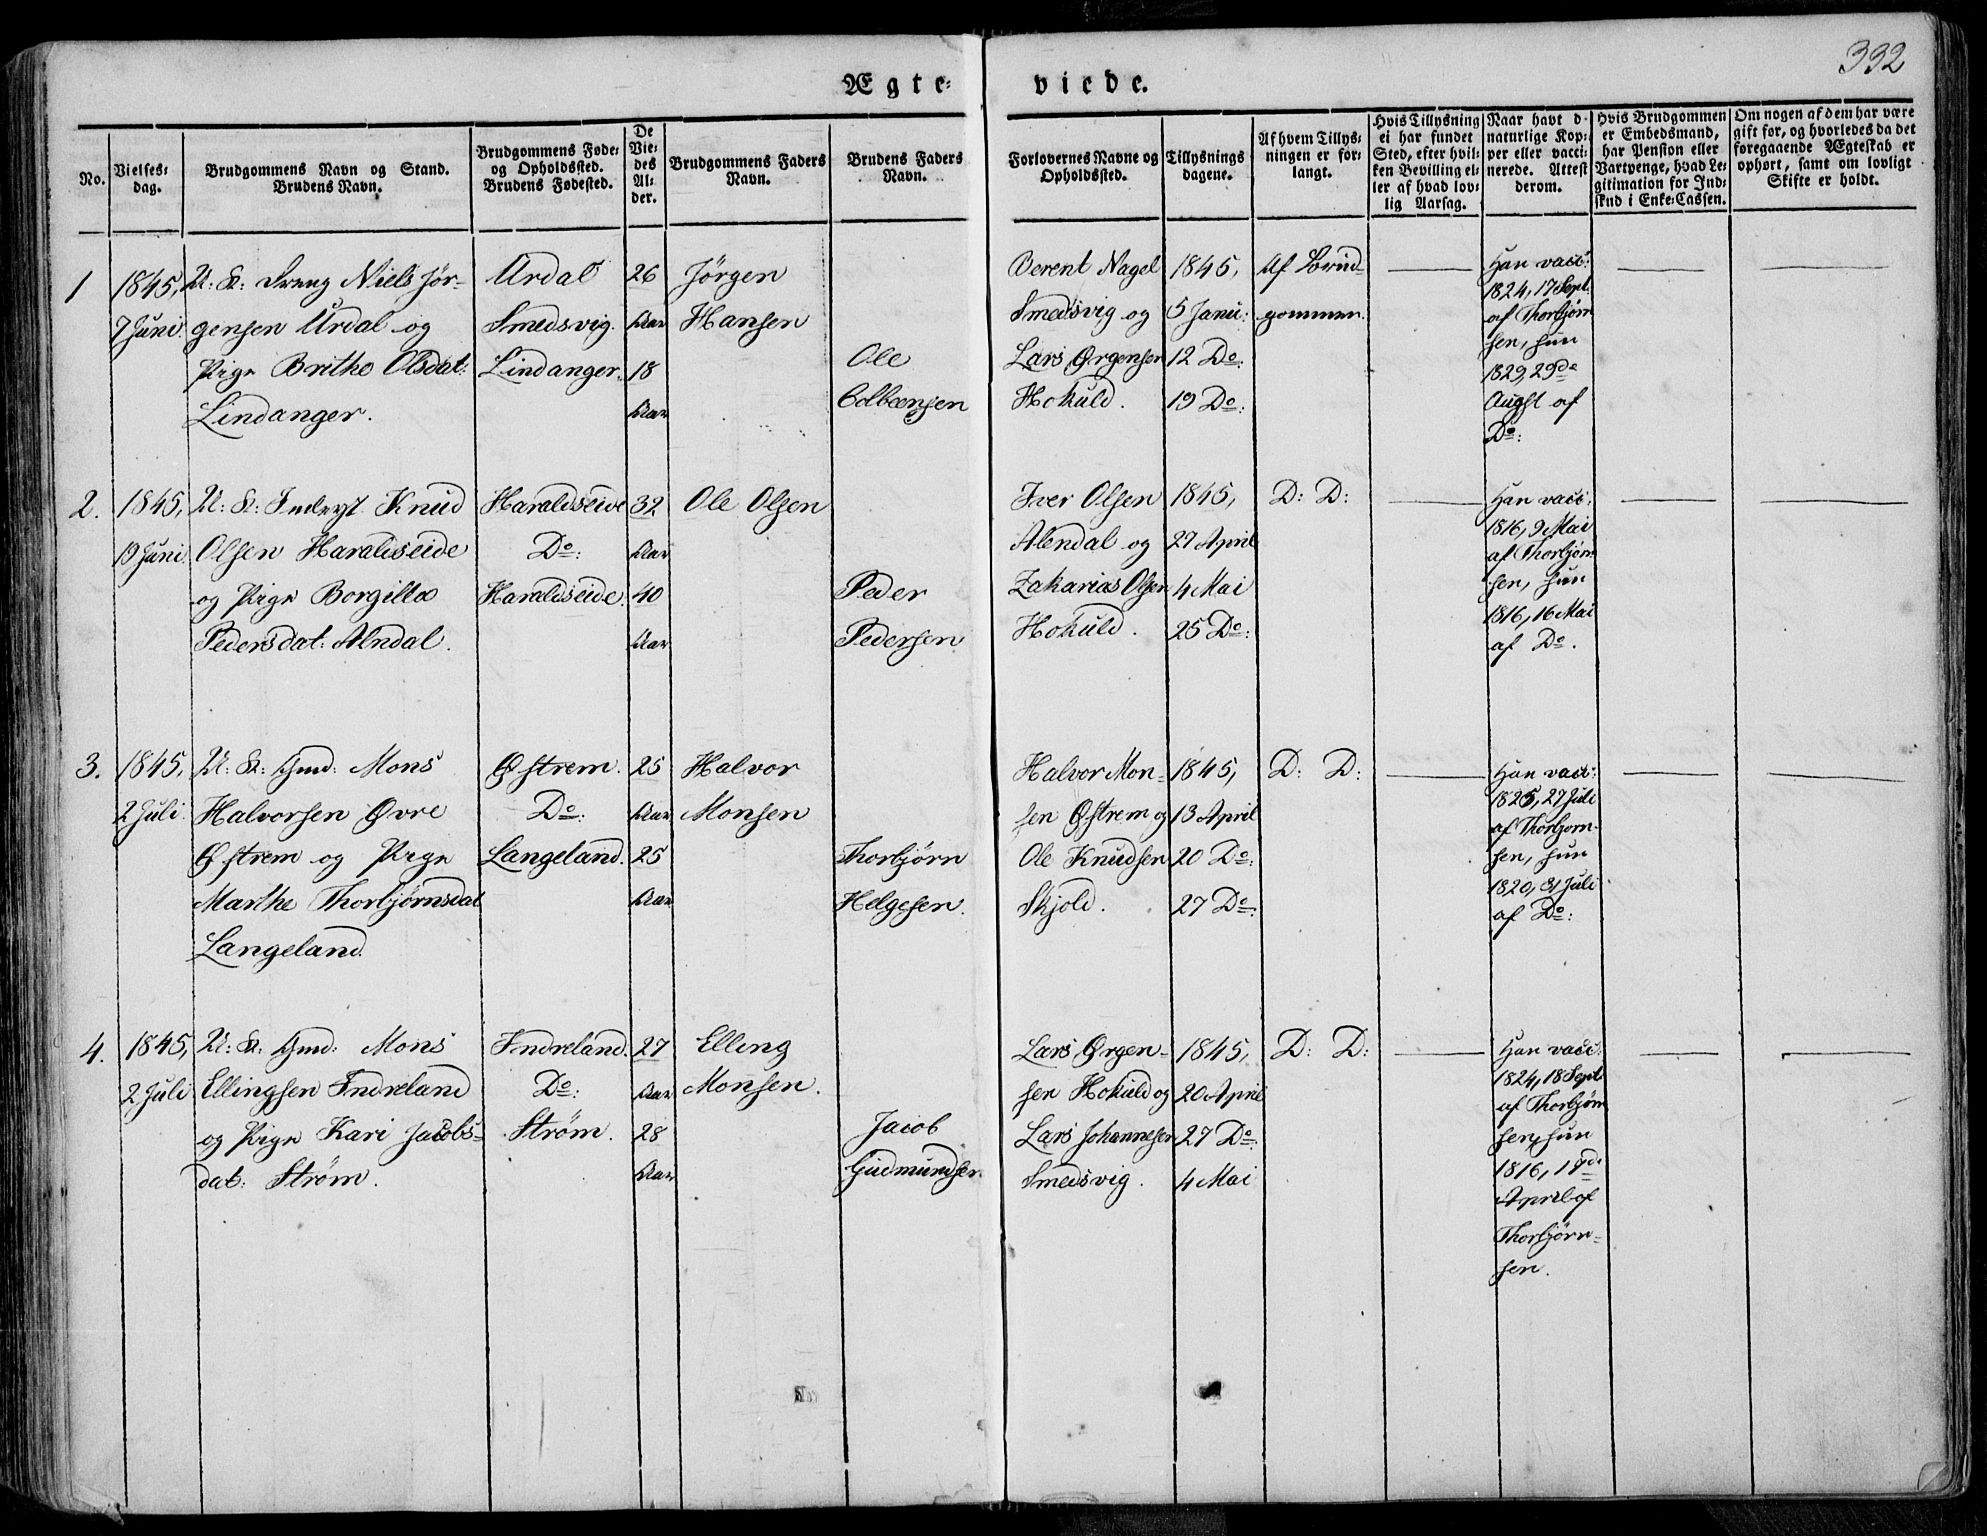 332
Ægte- viede.
No.
Vielses-
dag.
Brudgommens Navn og Stand.
Brudens Navn.
Brudgommens Føde-
og Opholdssted.
Brudens Fødested.
De
Vie-
des
Al-
der.
Brudgommens Faders
Navn.
Brudens Faders
Navn.
Forlovernes Navne og
Opholdssted.
Tillysnings
dagene.
Af hvem Tillys-
ningen er for-
langt.
Hvis Tillysning
ei har fundet
Sted, efter hvil-
ken Bevilling el-
ler af hvad lov-
lig Aarsag.
Naar havt d
naturlige Kop-
per eller vacci-
nerede. Attest
derom.
Hvis Brudgommen
er Embedsmand,
har Pension eller
Vartpenge, hvad Le-
gitimation for Ind-
skud i Enke-Cassen.
Om nogen af dem har være
gift for, og hvorledes da det
foregaaende Ægteskab er
ophørt, samt om lovligt
Skifte er holdt.
1
1845,
7 Juni
U: K: Dreng Niels Jør-
gensen Urdal og
Pige Brithe Olsdat:
Lindanger.
Urdal
Smedsvig.
Lindanger.
26
Aar
18
Aar
Jørgen
Hansen
Ole
Colbensen
Berent Nagel
Smedsvig og
Lars Ørgensen
Hokuld.
1845,
5 Janu:
12 Do:
19 Do:
Af Brud-
gommen.
Han vacc:
1824, 17 Sept.
af Thorbjørn
sen, hun
1829, 29de
Augst af
Do:
2.
1845,
19 Juni.
U: K: Inderst Knud
Olsen Haraldseide
og Pige Borgilla
Pedersdat: Alndal.
Haraldseide
Do:
Haraldseide.
32
Aar
40
Aar
Ole Olsen
Peder
Pedersen
Iver Olsen
Alendal og
Zakarias Olsen
Hokuld.
1845,
27 April
4 Mai
25 Do:
D: D:
Han vacc:
1816, 9 Mai
af Thorbjørn
sen, hun
1816, 16 Mai
af Do.
3.
1845,
2 Juli
U: K: Gmd: Mons
Halvorsen Øvre
Østrem og Pige
Marthe Thorbjørnsdat
Langeland.
Østrem.
Do:
Langeland.
25
Aar
25
Aar
Halvor
Monsen
Thorbjørn
Helgesen.
Halvor Mon-
sen Østrem og
Ole Knudsen
Skjold.
1845,
13 April
20 Do:
27 Do:
D: D:
Han vacc:
1825, 27 Juli
af Thorbjørn-
sen, hun
1820, 31 Juli
af Do:
4.
1845,
2 Juli
U: K: Gmd: Mons
Ellingsen Indreland
og Pige Kari Jacobs-
dat: Strøm.
Indreland.
Do:
Strøm.
27
Aar
28
Aar
Elling
Monsen.
Jacob
Gudmundsen.
Lars Ørgen-
sen Hokuld og
Lars Johannesen
Smedsvig.
1845,
20 April
27 Do:
4 Mai
D: D:
Han vacc:
1824, 18 Sept
af Thorbjørn
sen, hun
1816, 18de
April af
Thorbjørn-
sen.